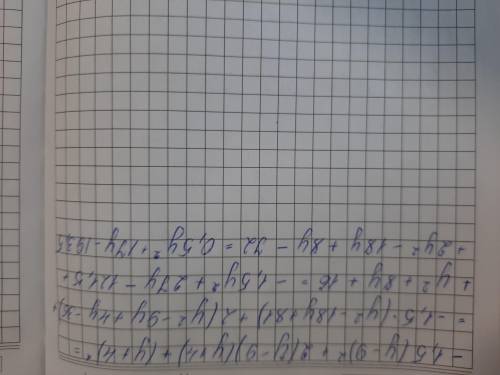 -1,5(y-9)² + 2(y-9)(y+4) + (y+4)² =
= -1,5·(y² - 18y + 81) + 2(y² - 9y + 4y - 36) +
+ y² + 8y + 16 = -1,5y² + 27y - 121,5 +
+ 2y² - 18y + 8y - 72 = 0,5y² + 17y - 193,5